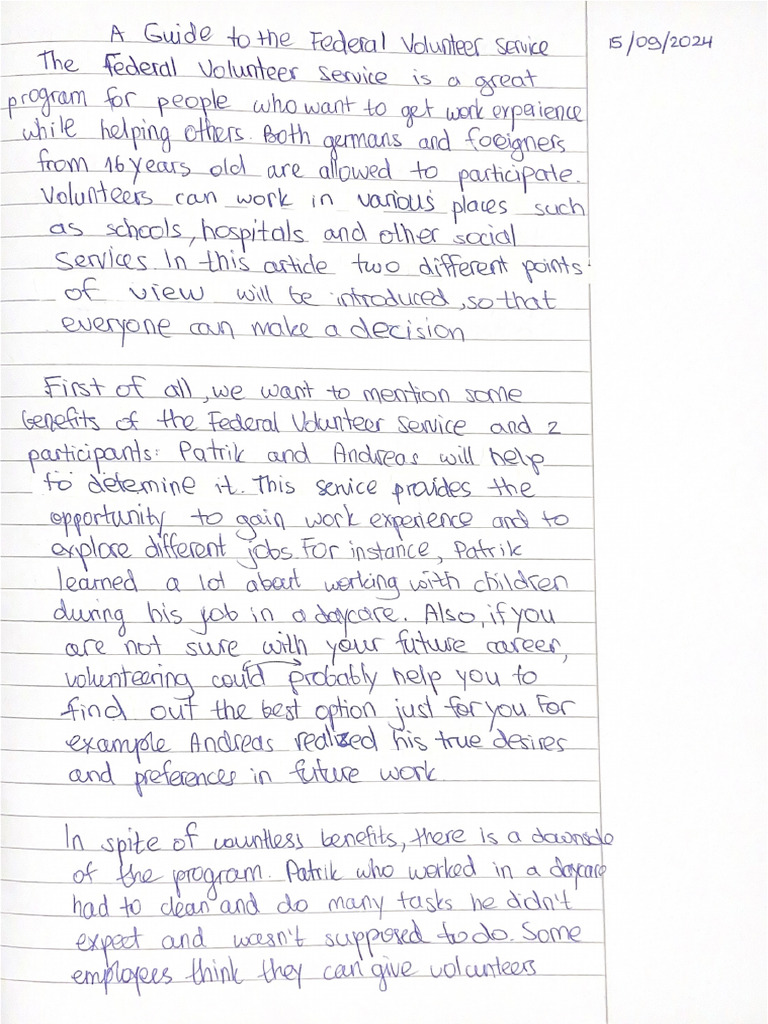 A Guide to the Federal Volunteer Service
15/09/2024
The Federal Volunteer Service is a great
program for people who want to get work experience
while helping others. Both germans and foreigners
from 16 years old are allowed to participate.
Volunteers can work in various places such
as schools, hospitals and other social
services. In this article two different points
of view will be introduced, so that
everyone can make a decision
First of all, we want to mention some
benefits of the Federal Volunteer Service and 2
participants: Patrik and Andreas will help
to detemine it. This service provides the
opportunity to gain work experience and to
explore different jobs. For instance, Patrik
learned a lot about working with children
during his job in a daycare. Also, if you
are not sure with your future career,
volunteering could probably help you to
find out the best option just for you. For
example Andreas realized his true desires
and preferences in future work.
In spite of countless benefits, there is a downside
of the program. Patrik who worked in a daycare
had to clean and do many tasks he didn't
expect and wasn't supposed to do. Some
employees think they can give volunteers